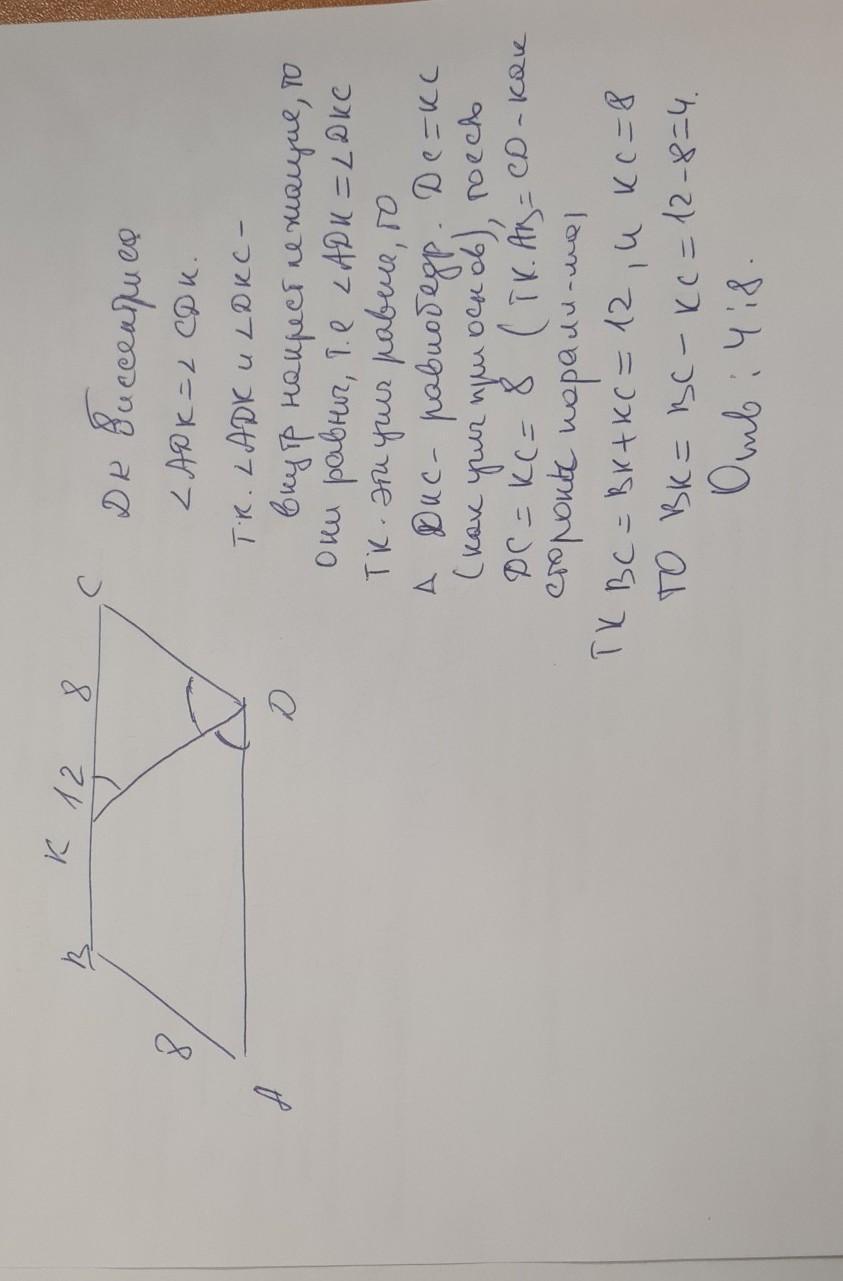 B K 12 8 C
8
A D
DK биссектриса
∠ADK=∠CDK.
т.к. ∠ADK и ∠DKC -
внутр накрестлежащие, то
они равны, т.е ∠ADK=∠DKC
Тк. эти углы равны, то
Δ DKC - равнобедр. DC=KC
(как углы при основ), тоесть
DC=KC=8 (тк. AB=CD-как
стороны парал-ма)
Тк BC=BK+KC=12, и KC=8
то BK=BC-KC=12-8=4.
Отв: 4;8.